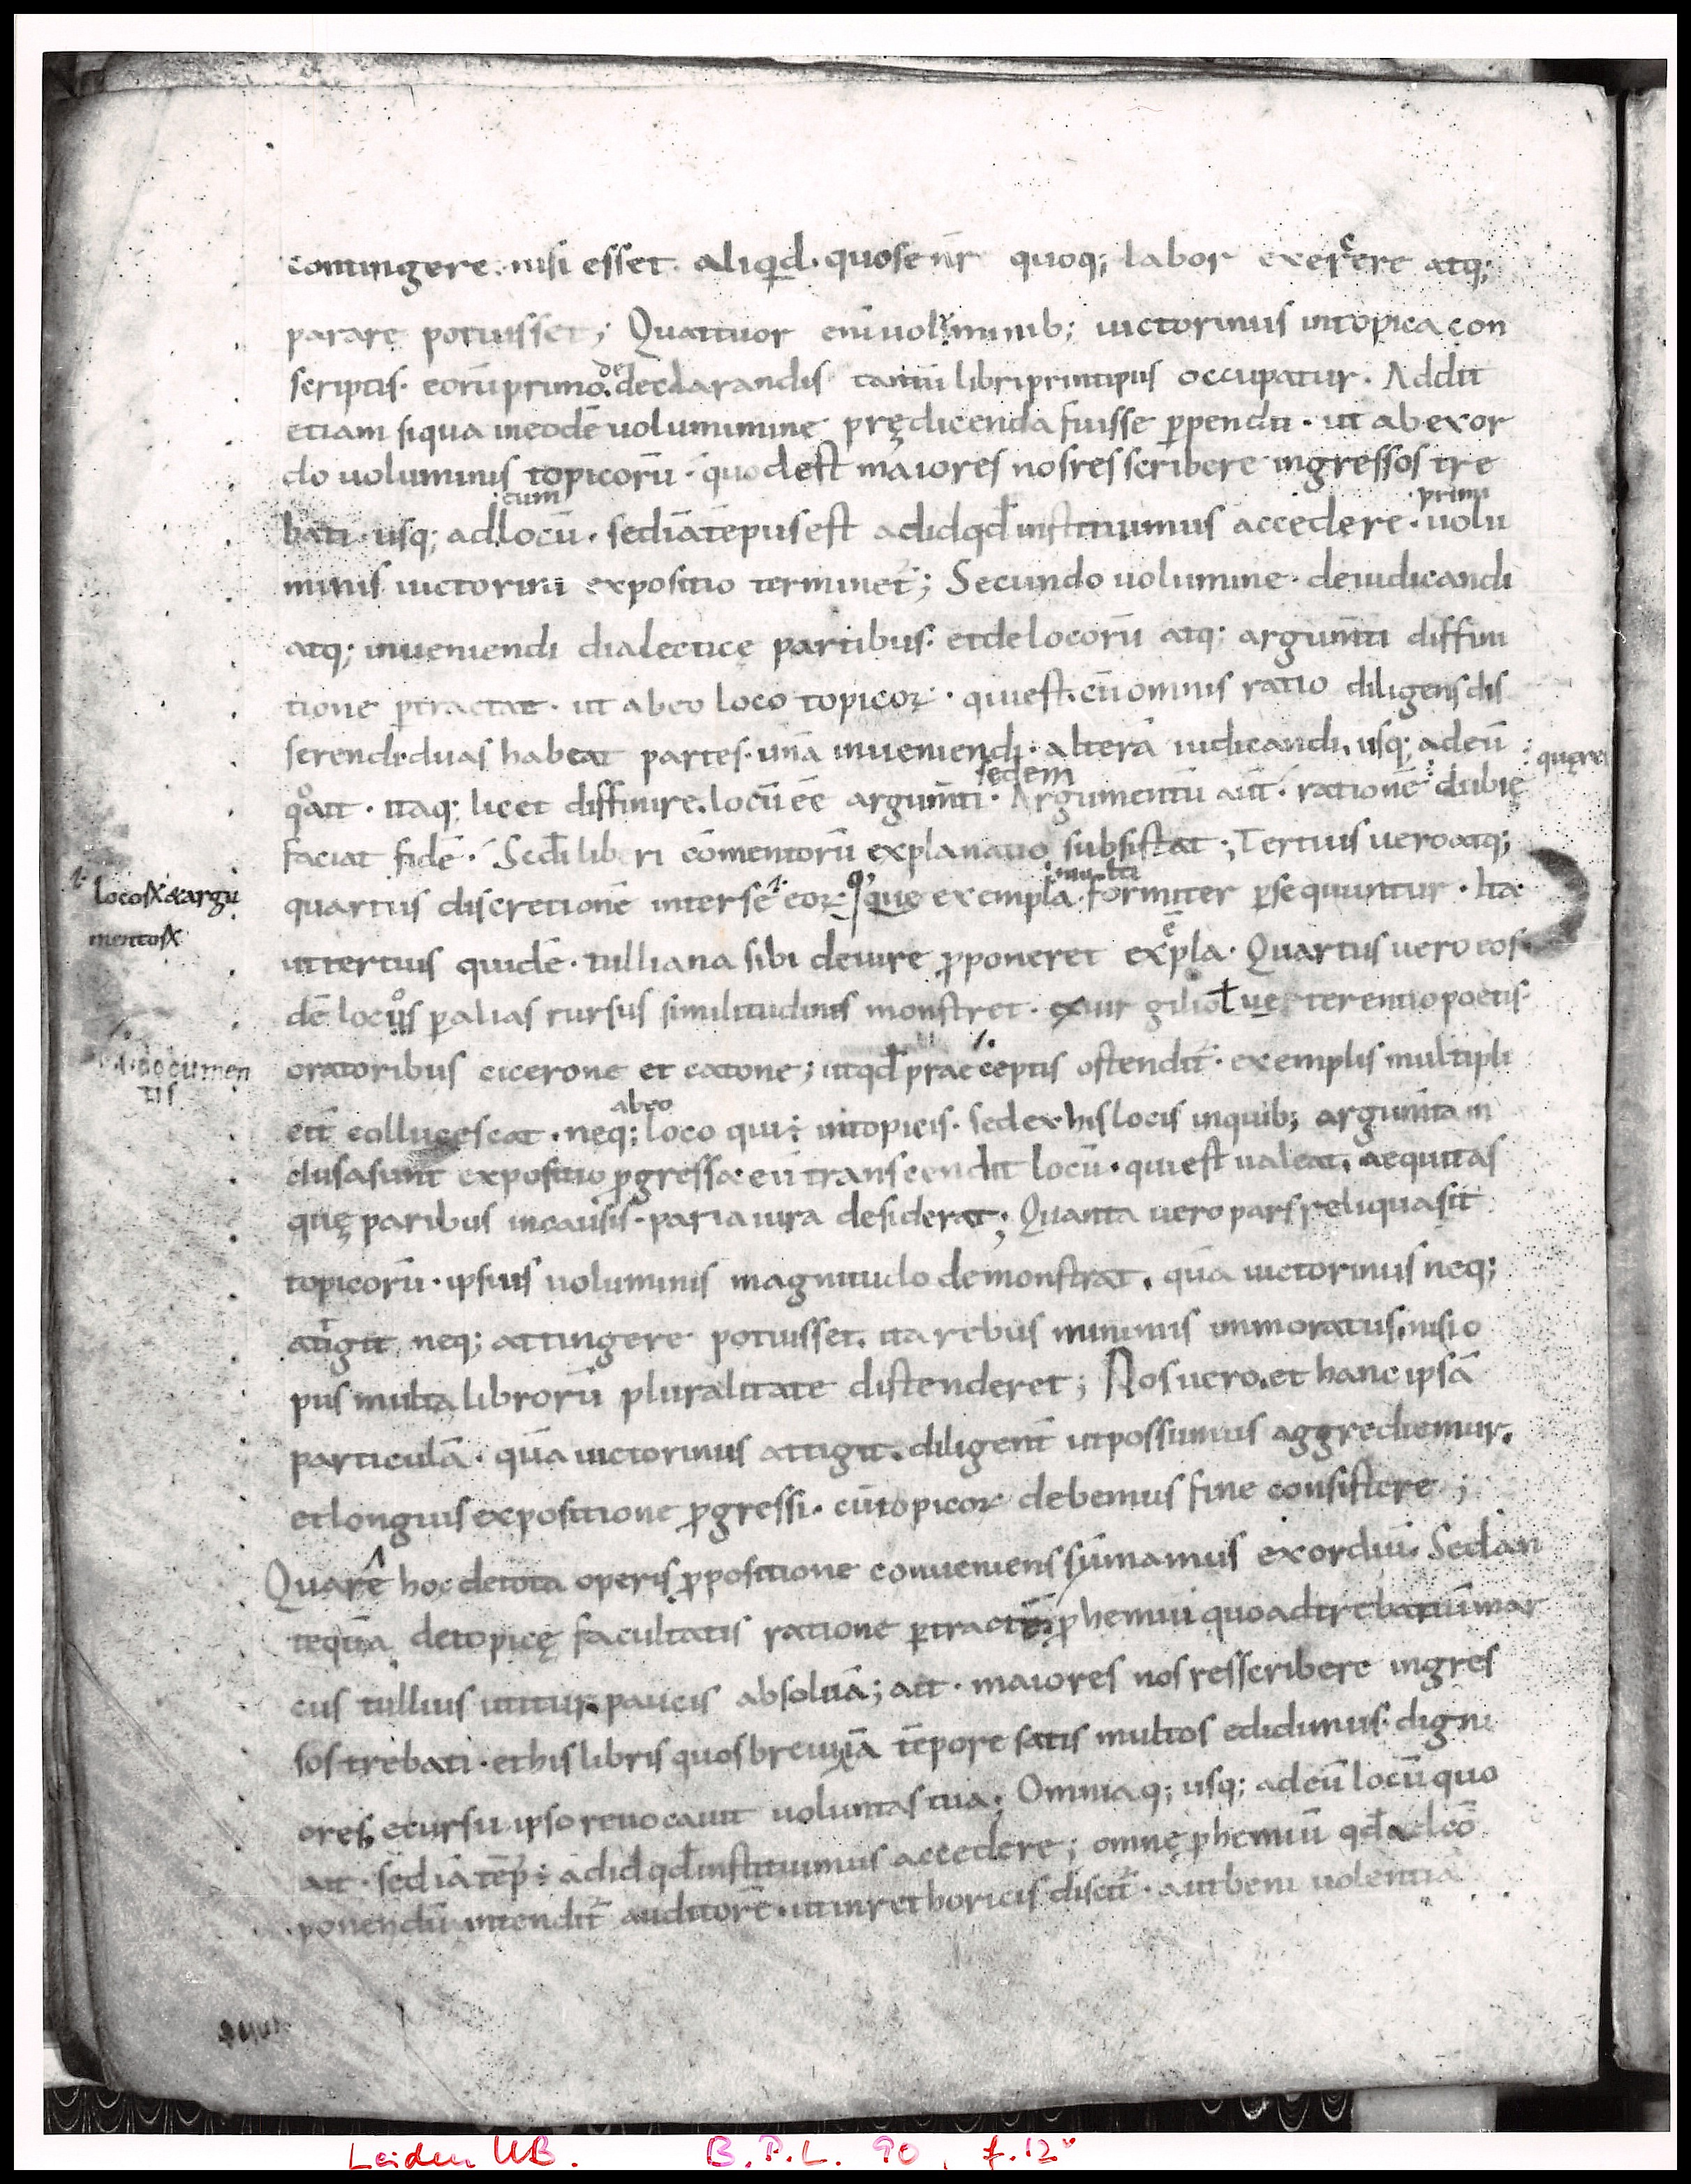 contingere. nisi esset. aliq̣d. quose nr̄ quoq; labor exercere atq;
parare potuisset; Quattuor eni uoluminib; uictorinus intopica con
scriptis. eorū primo. de declarandis tantū libriprincipiis occupatur. Addit
etiam siqua ineodē uolumimine prędicenda fuisse ꝑpendit. ut abexor
do uoluminis topicorū. quodest maiores nosres scribere ingressos tre
cum primi
bati. usq; adlocū. sediātēpusest adidqđ instituimus accedere. uolu
minis uictorini expositio terminet̄; Secundo uolumine. deiudicandi
atq; inueniendi dialecticę partibus. etdelocorū atq; argum̄ti diffini
tione ꝑtractat. ut abeo loco topicoꝝ. quiest. cū omnis ratio diligens dis
serendi. duas habeat partes. unā inueniendi. alterā iudicandi. usq; adeū
quęrei
sedem
qo ait. itaq; licet diffinire. locū eē argum̄ti. Argumentū aut̄. rationē dubię
faciat fidē. Sedi liberi cōmentorū explanatio subsistat; Tertius uero atq;
locosX &argu
mentosX
multi
quartus discretionē interse eoꝝ que exempla. formiter ꝑsequuntur. Ita
uttertius quidē. tulliana sibi deiure ꝓponeret exēpla. Quartus uero eos
dē locos ꝑalias rursus similitudinis monstret. exuir gilio ł uel terentio poetis
documen
tis
oratoribus cicerone et catone; utqđ praeceptis ostendit̄. exemplis multipli
abeo
cit̄ collucescat. neq; loco qui ÷ intopicis. sed exhis locis inquib; argum̄ta in
clusasunt expositio ꝓgressa eū transcendit locū. quiest ualeat. aequitas
quę paribus incausis. paria iura desiderat; Quanta uero pars reliquasit
topicorū. ipsius uoluminis magnitudo demonstrat. quā uictorinus neq;
attigit neq; attingere potuisset. ita rebus minimis immoratus. nisi o
pus multa librorū pluralitate distenderet; Nos uero. et hanc ipsā
particulā. quā uictorinus attigit. diligent̄ utpossumus aggrediemur.
etlongius expositione ꝓgressi. cū topicoꝝ debemus fine consistere;
Quare hoc detota operis ꝓpositione conueniens sumamus exordiū. Sed an
tequā detopicę facultatis ratione ꝑtractē ꝓhemiū quo adtrebatiū mar
cus tullius utitur. paucis absoluā; ait. maiores nos resscribere ingres
sos trebati. ethis libris quos breui iā tēpore satis multos edidimus. digni
ores. ecursu ipso reuocauit uoluntas tua; Omniaq; usq; adeū locū quo
ait. sed iā tēp' ÷ adid qđ instituimus accedere; omnę ꝓhemiū qđ adeō
ponendū intendit̄ auditorē. ut inrethoricis discit̄. aut beni uolentiā
Leiden UB. B.P.L. 90, f.12v